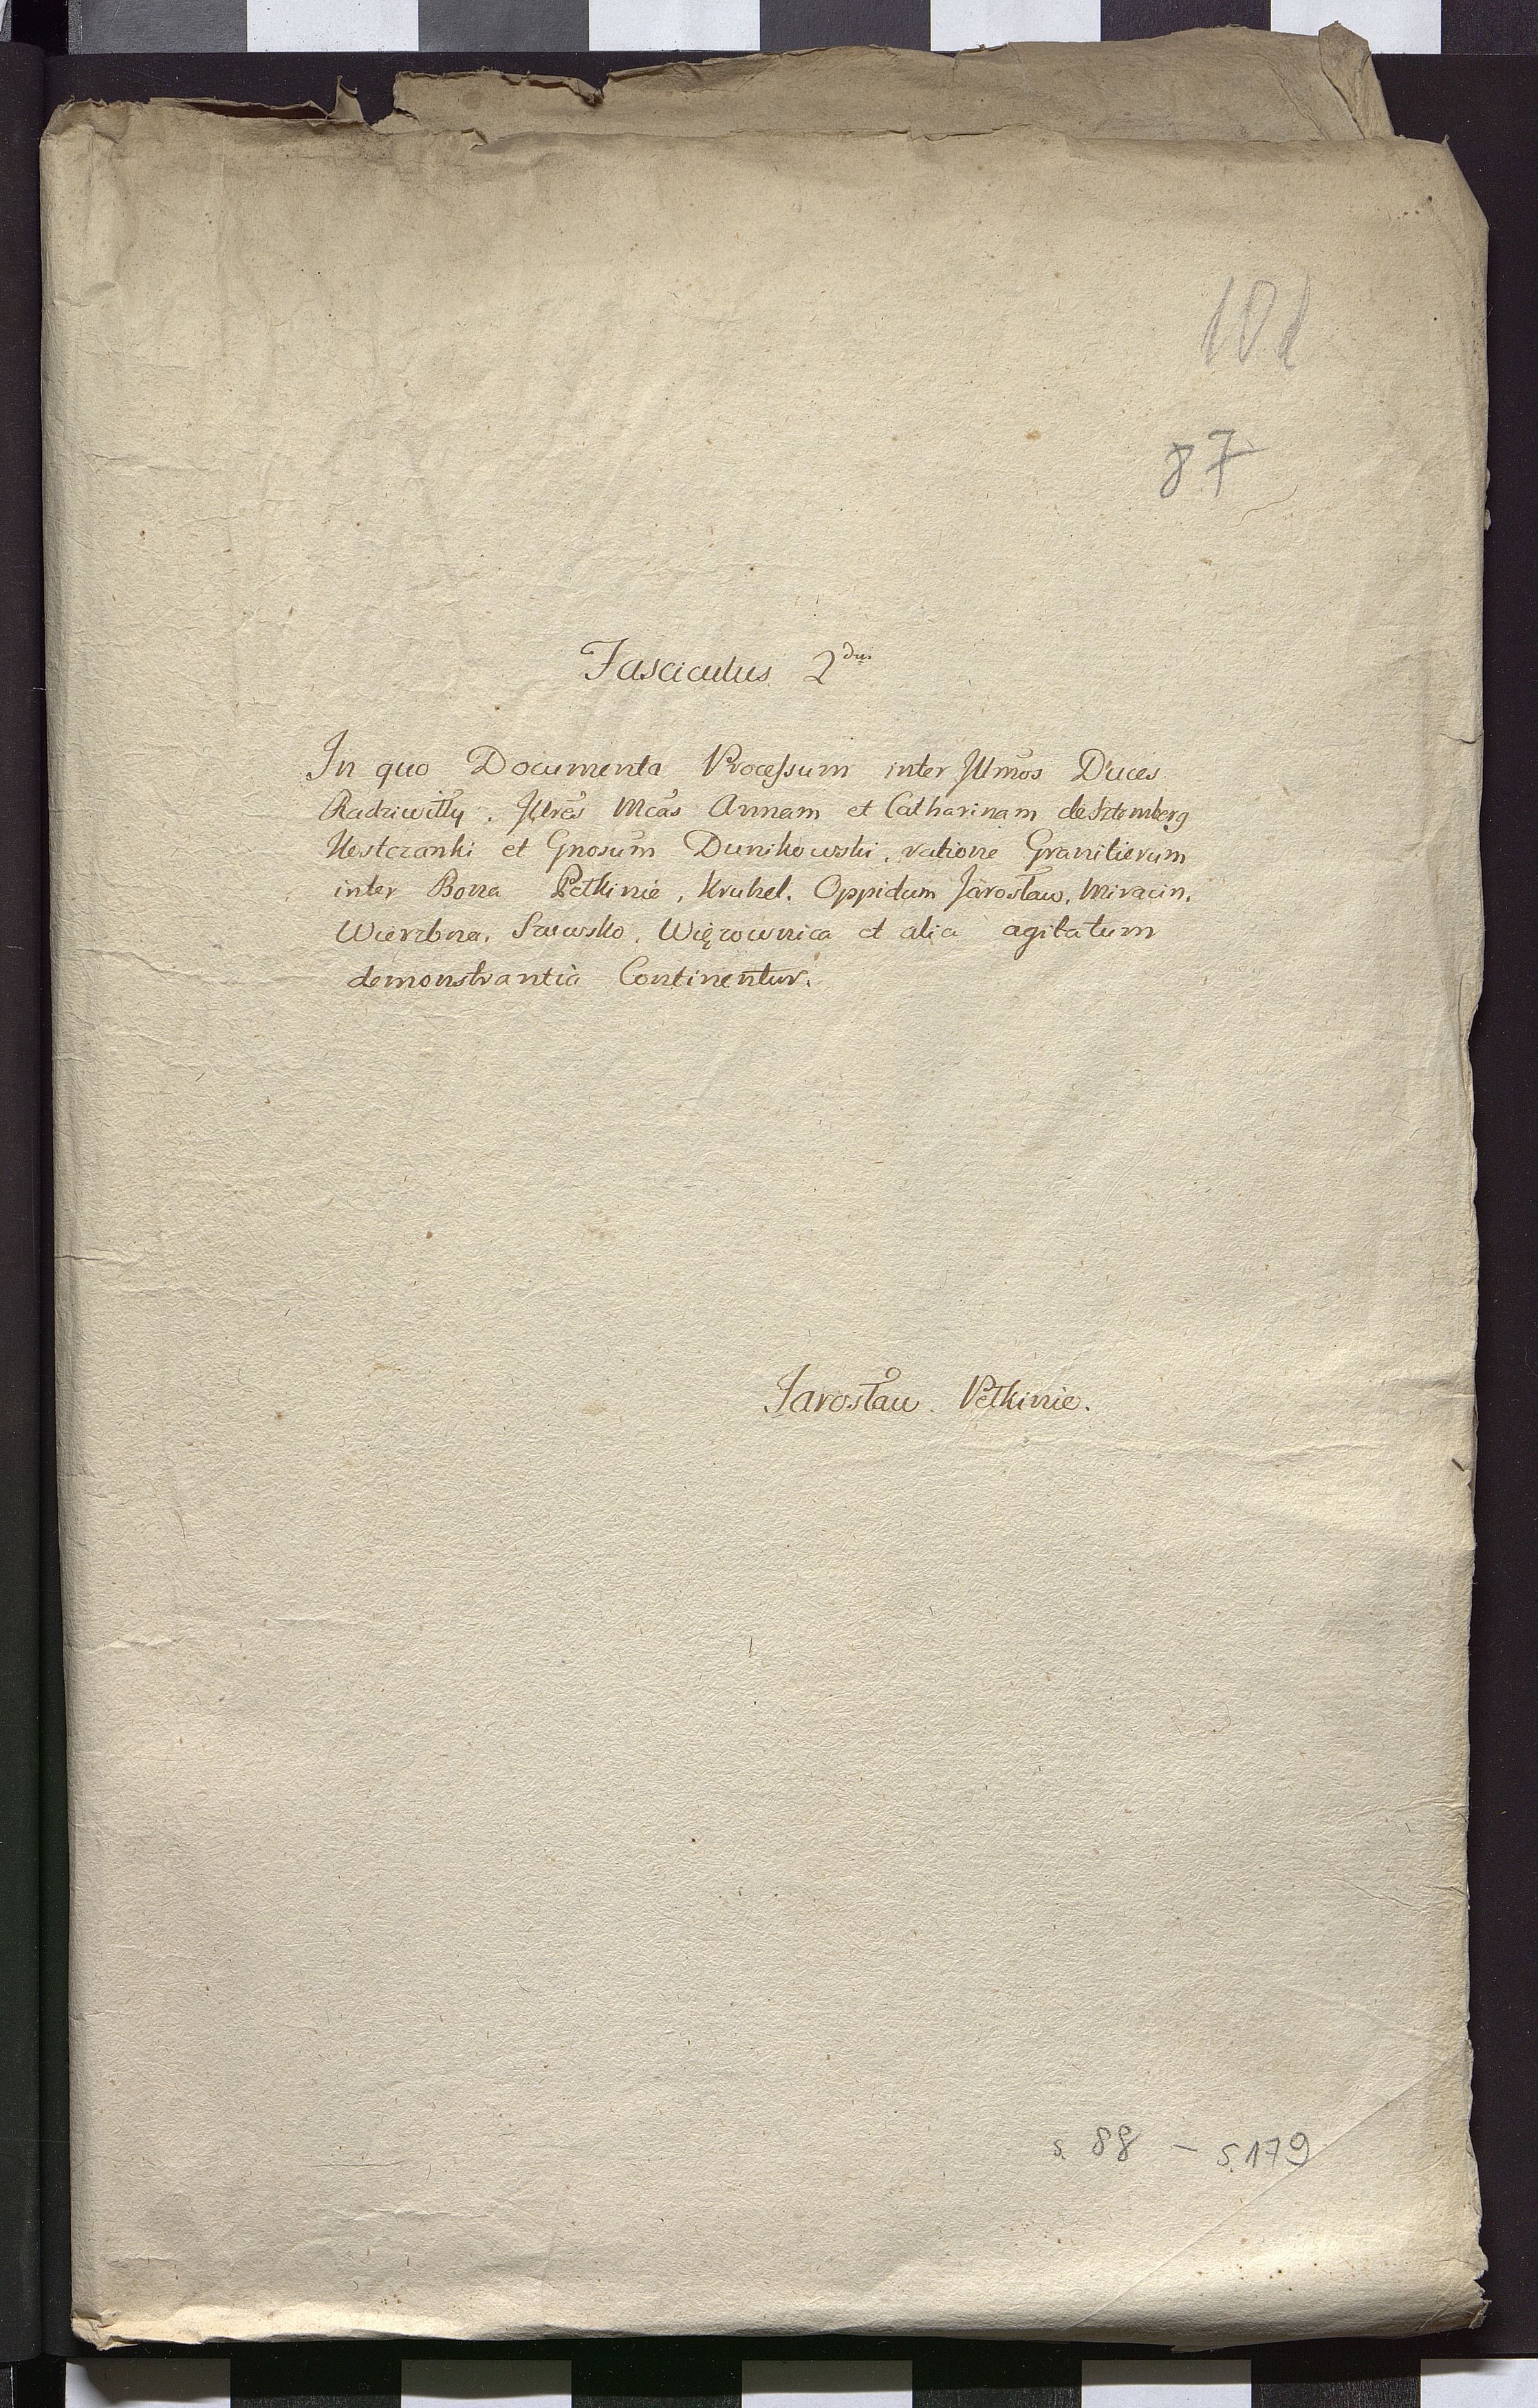 101
87
Fasciculus 2dus
In quo Documenta Processum inter Jllmos Duces
Radziwiłły, Jllres Mcas Annam et Catharinam de Sztemberg
Kostczanki et Gnosum Dunikowski, ratione Granitierum
inter Bona Pełkinie, Kruhel, Oppidum Jarosław, Miracin,
Wierzbna, Szuwsko, Wiązownica et alia agitatum
demonstrantia Continentur.
Jarosław. Pełkinie.
s. 88 – s. 179